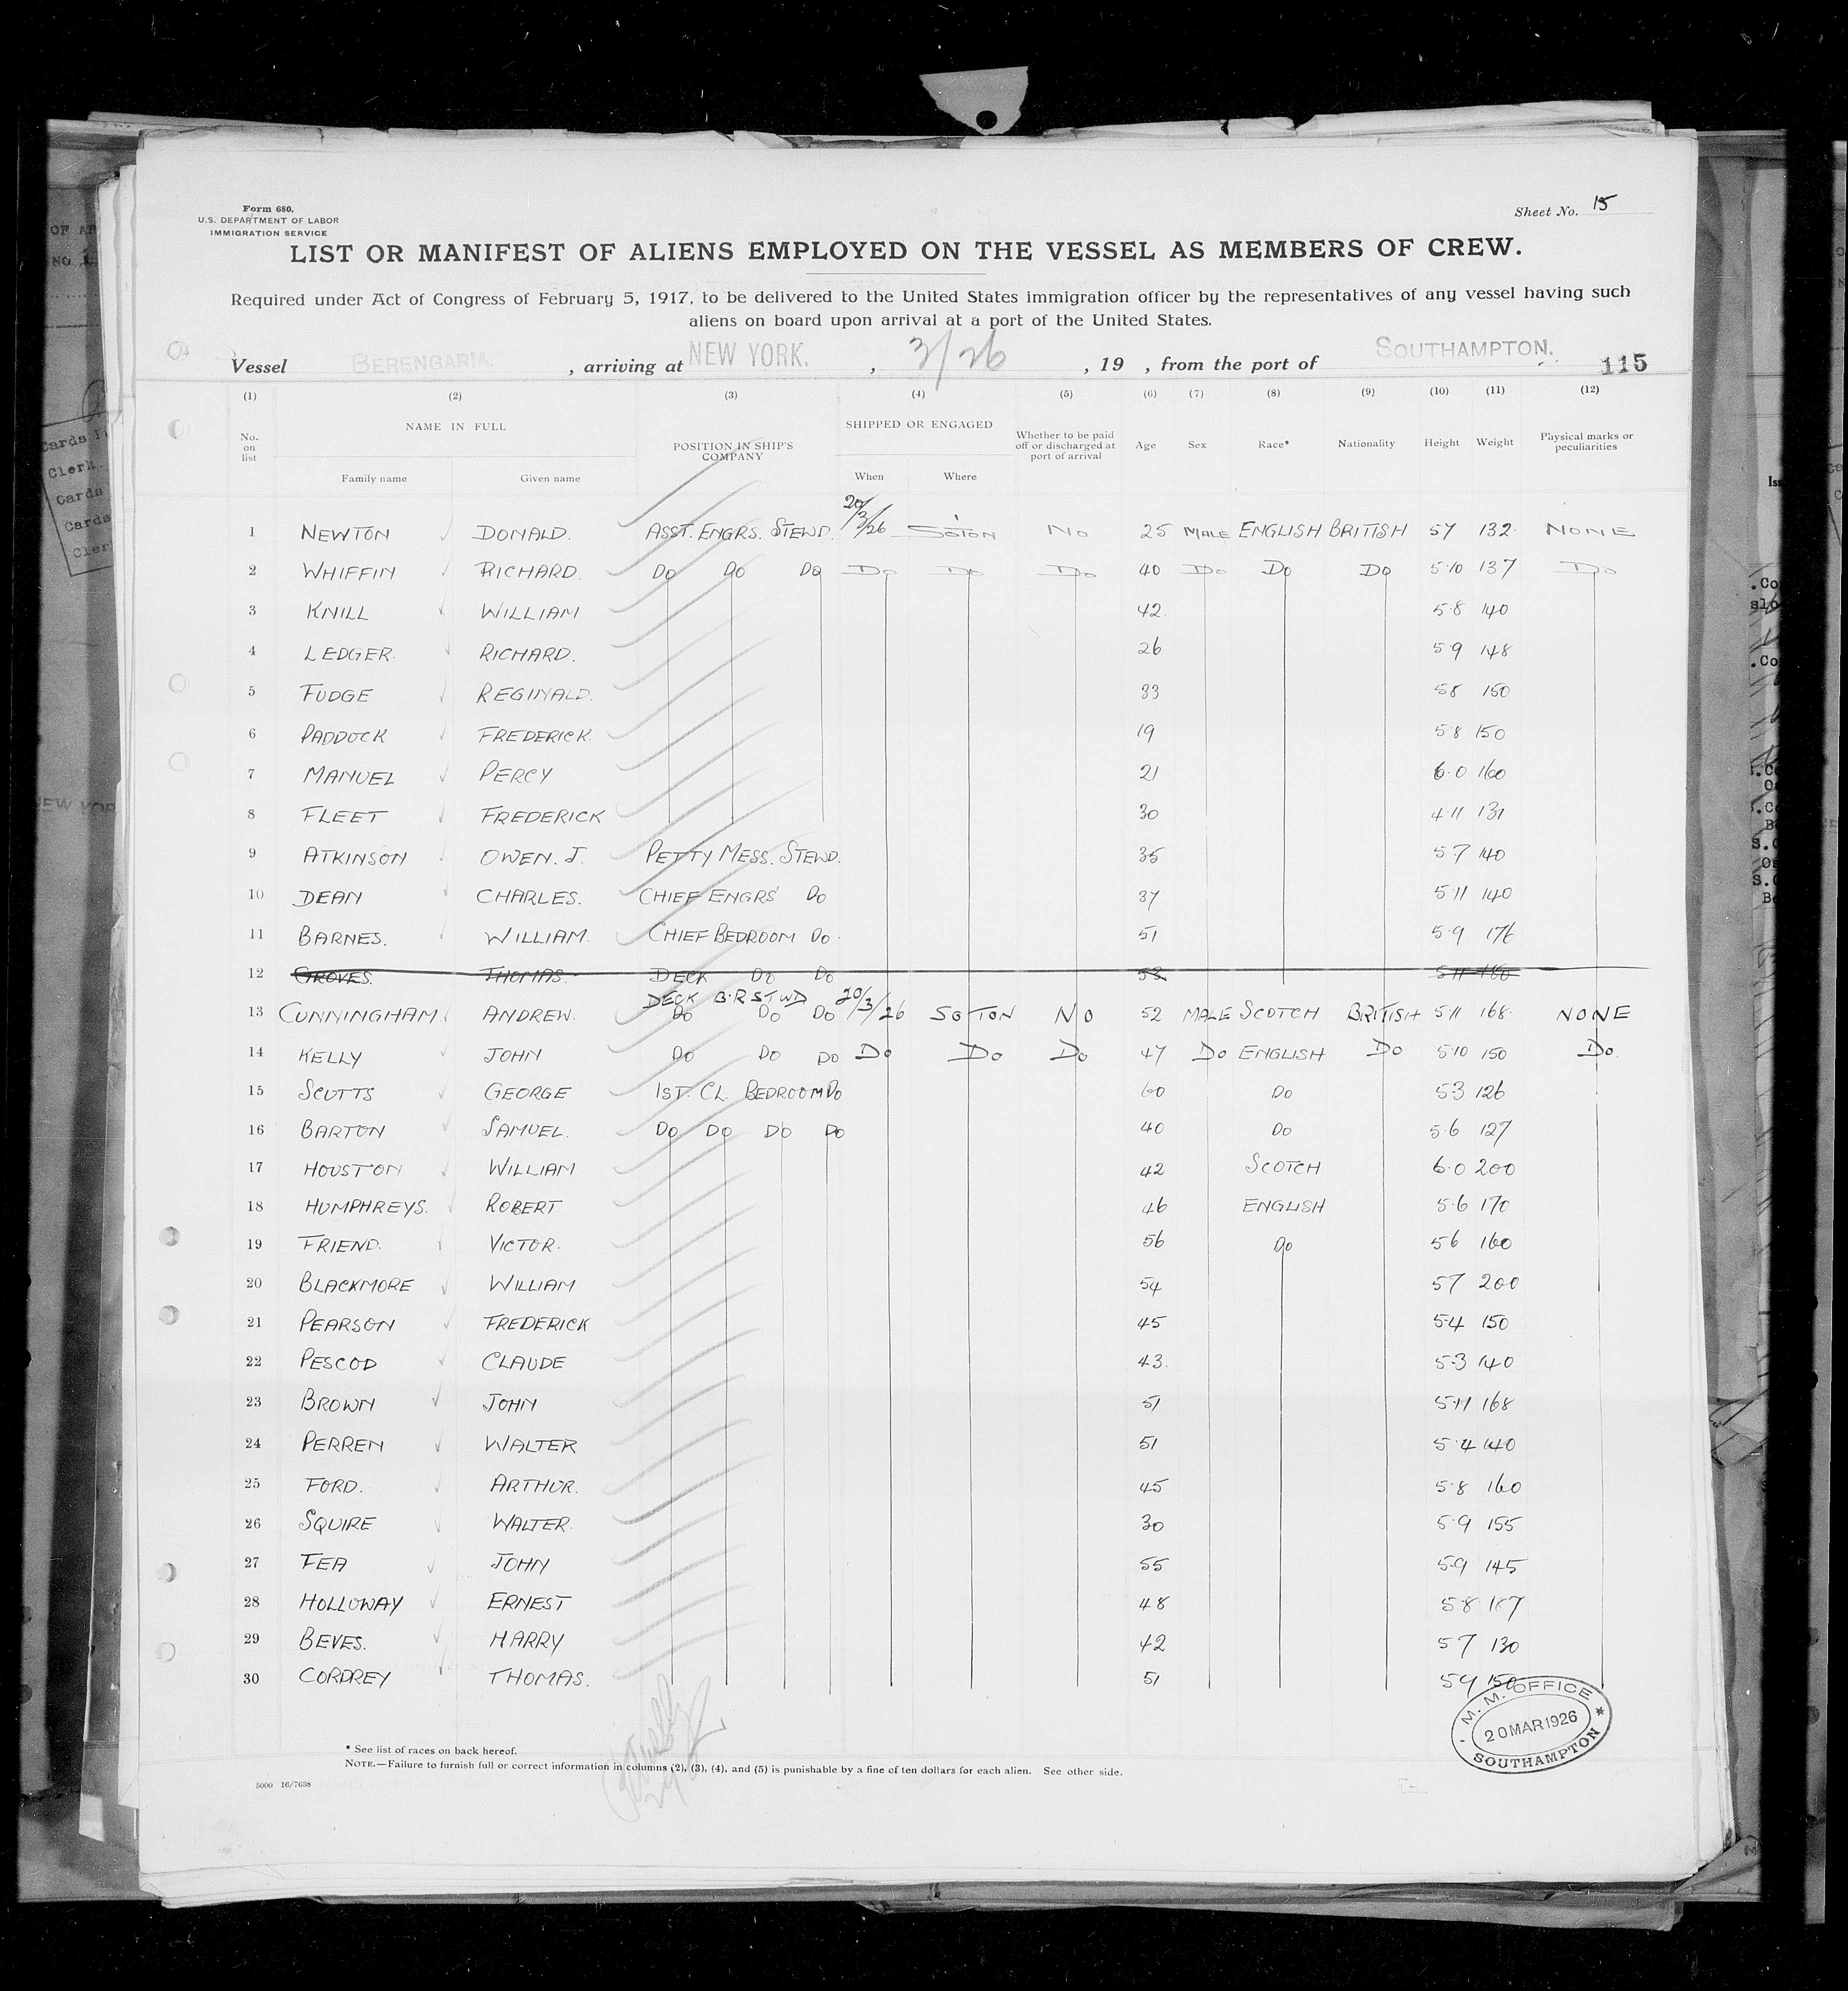 Form 680.
U.S. DEPARTMENT OF LABOR
IMMIGRATION SERVICE
Sheet No. 15
LIST OR MANIFEST OF ALIENS EMPLOYED ON THE VESSEL AS MEMBERS OF CREW.
Required under Act of Congress of February 5, 1917, to be delivered to the United States immigration officer by the representatives of any vessel having such
aliens on board upon arrival at a port of the United States.
Vessel BERENGARIA. , arriving at NEW YORK. , 3/26 , 19 , from the port of SOUTHAMPTON. 115
(1) (2) (3) (4) (5) (6) (7) (8) (9) (10) (11) (12)
No. on list NAME IN FULL Family name Given name POSITION IN SHIP'S COMPANY SHIPPED OR ENGAGED When Where Whether to be paid off or discharged at port of arrival Age Sex Race* Nationality Height Weight Physical marks or peculiarities
1 NEWTON DONALD. ASST. ENGRS. STEWD. 20/3/26 SOTON NO 25 MALE ENGLISH BRITISH 57 132 NONE
2 WHIFFIN RICHARD. DO DO DO DO DO DO 40 DO DO DO 5·10 137 DO
3 KNILL WILLIAM 42. 5·8 140
4 LEDGER. RICHARD. 26 5·9 148
5 FUDGE REGINALD. 33 58 150
6 PADDOCK FREDERICK. 19 5·8 150
7 MANUEL PERCY 21 6·0 160
8 FLEET FREDERICK 30 4·11 131
9 ATKINSON OWEN. J. PETTY MESS. STEWD. 35 5·7 140
10 DEAN CHARLES. CHIEF ENGRS' DO 37 5·11 140
11 BARNES. WILLIAM. CHIEF BEDROOM DO. 51 5·9 176
12 GROVES. THOMAS. DECK DO DO 5·11
DECK B.R STWD
13 CUNNINGHAM ANDREW. DO DO DO 20/3/26 SOTON NO 52 MALE SCOTCH BRITISH 5·11 168. NONE
14 KELLY JOHN DO DO DO DO DO DO 47 DO ENGLISH DO 5·10 150 DO.
15 SCUTTS GEORGE 1ST. CL. BEDROOM DO 60 DO 53 126
16 BARTON SAMUEL. DO DO DO DO 40 DO 5·6 127
17 HOUSTON WILLIAM 42 SCOTCH 6·0 200
18 HUMPHREYS. ROBERT 46 ENGLISH 5·6 170
19 FRIEND. VICTOR. 56 DO 56 160
20 BLACKMORE WILLIAM 54 57 200
21 PEARSON FREDERICK 45 5·4 150
22 PESCOD CLAUDE 43. 5·3 140
23 BROWN JOHN 51 5·11 168
24 PERREN WALTER 51 5·4 140
25 FORD. ARTHUR. 45 5·8 160
26 SQUIRE WALTER. 30 5·9 155
27 FEA JOHN 55 5·9 145
28 HOLLOWAY ERNEST 48 5·8
29 BEVES. HARRY 42 57 130
30 CORDREY THOMAS. 51 59 150
M. M. OFFICE
20 MAR 1926
SOUTHAMPTON
* See list of races on back hereof.
NOTE.—Failure to furnish full or correct information in columns (2), (3), (4), and (5) is punishable by a fine of ten dollars for each alien. See other side.
5000 16/7638